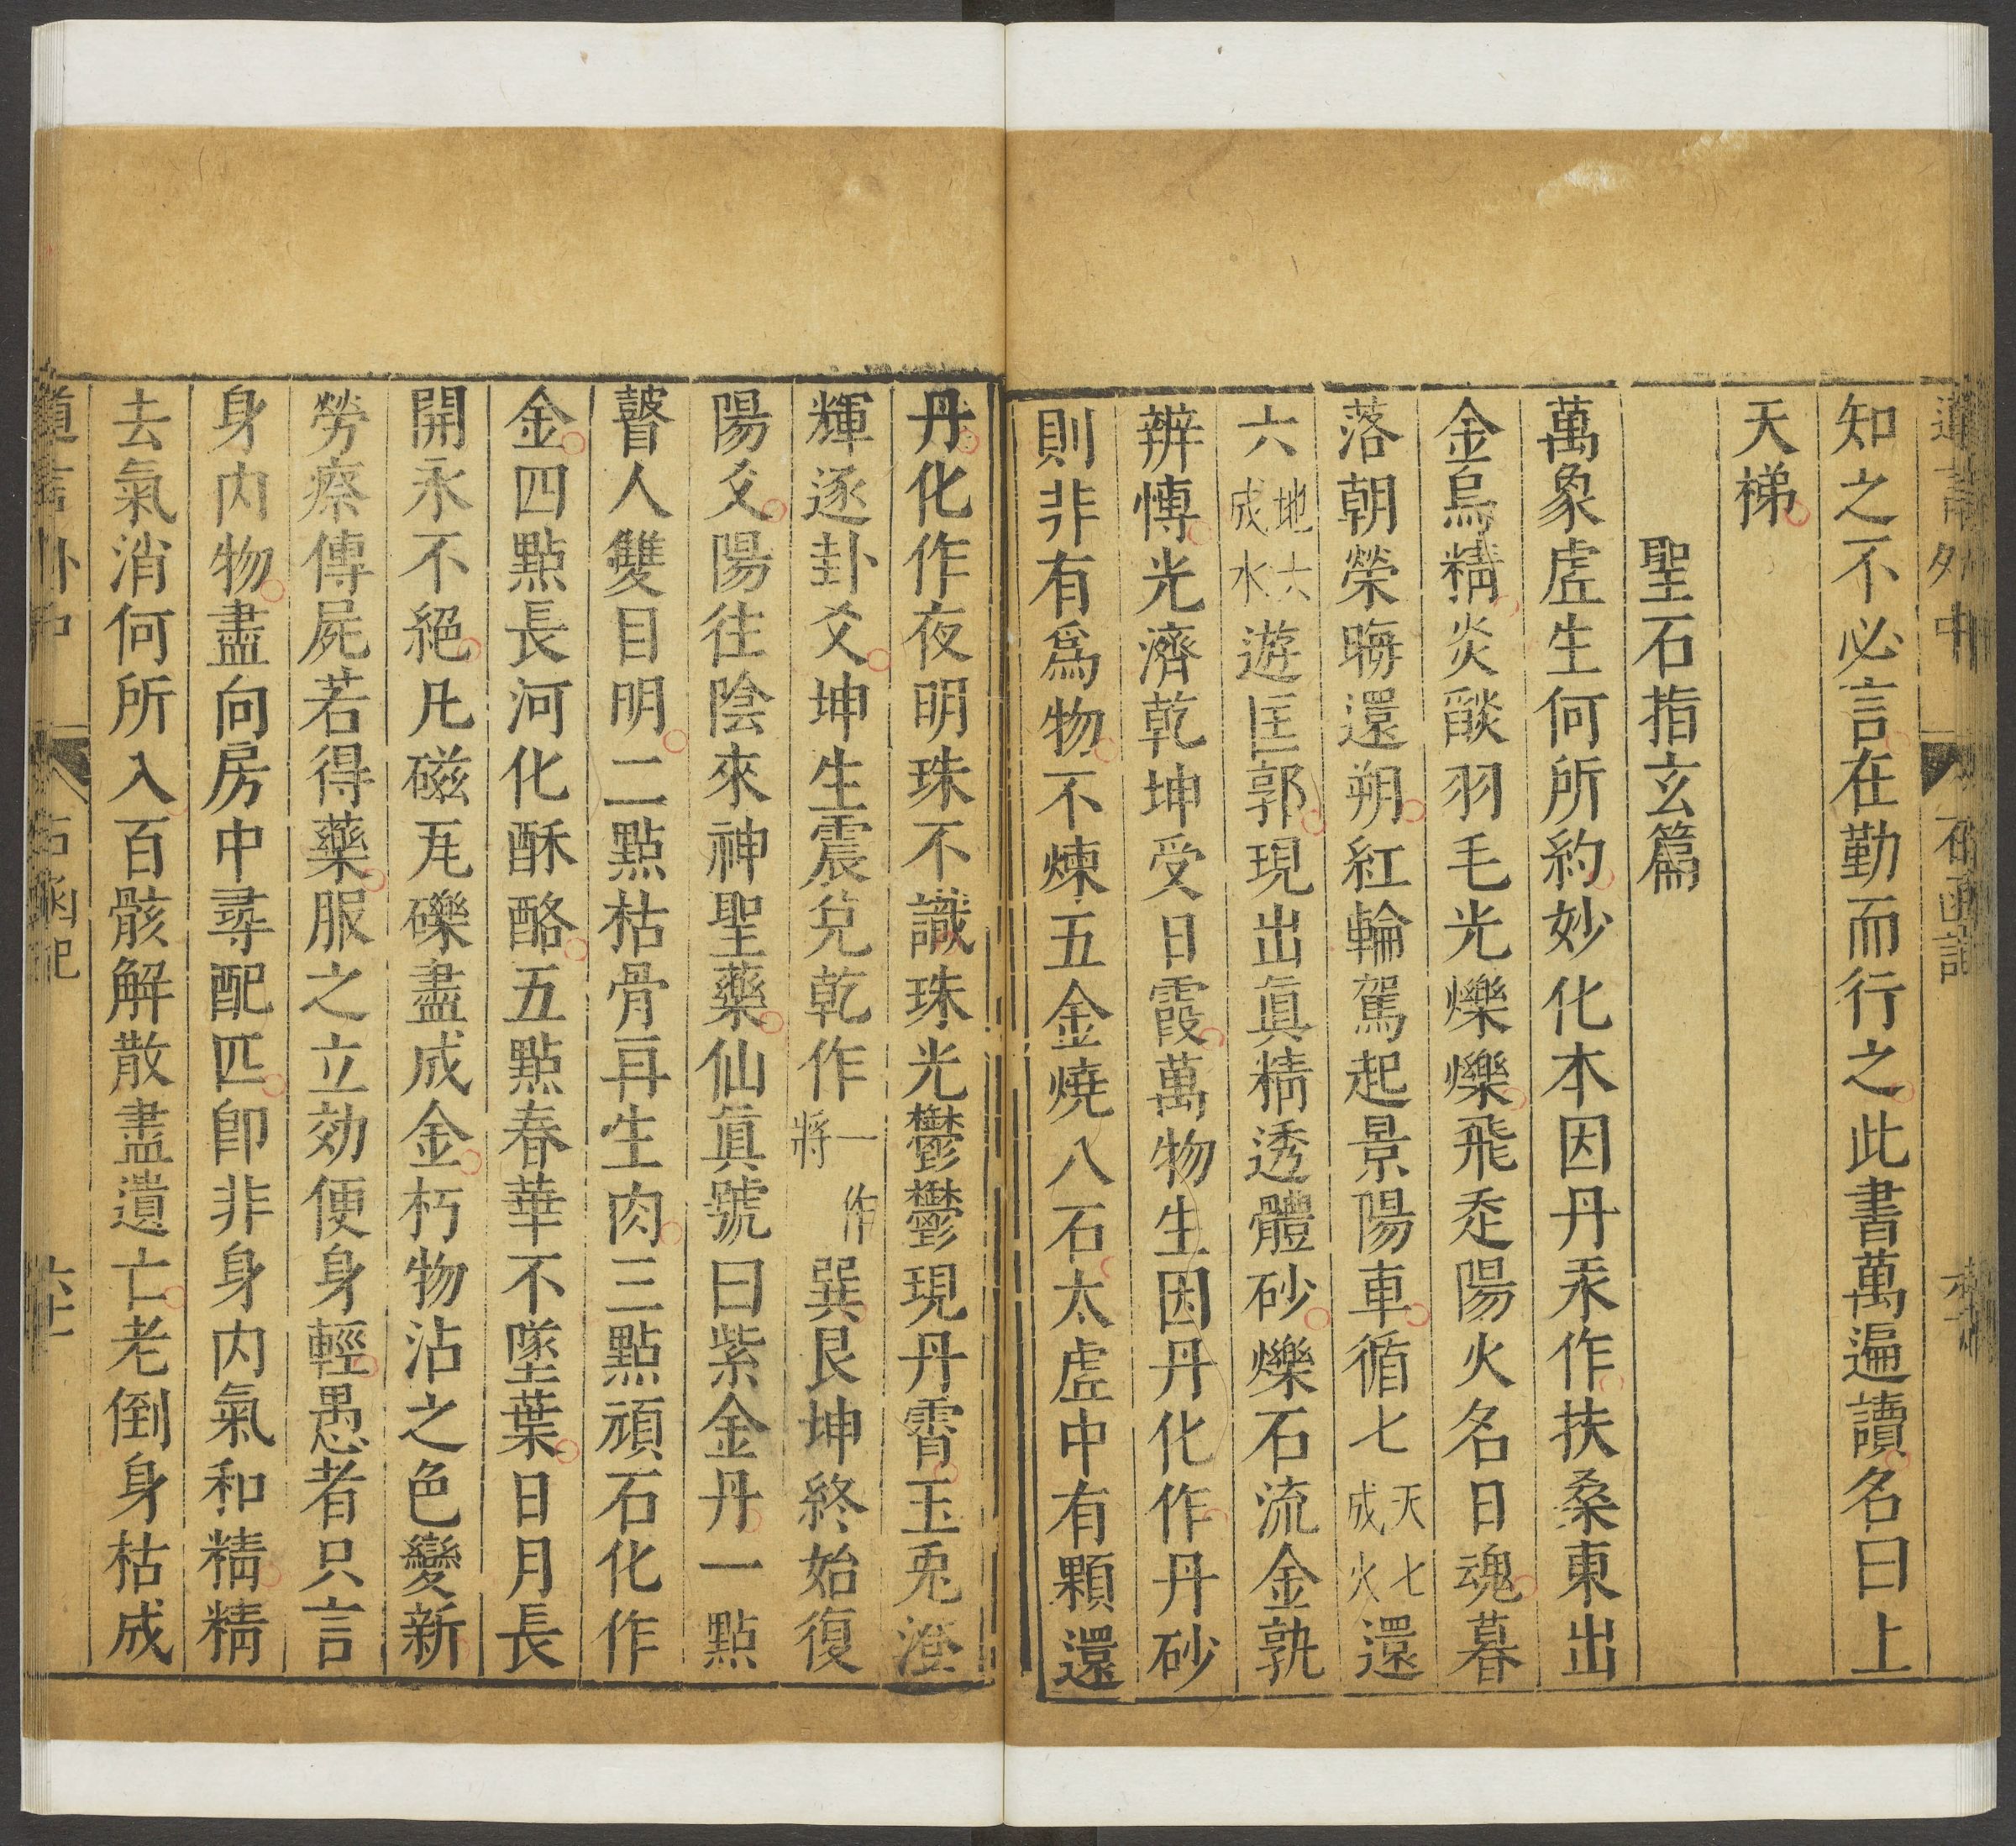 知之不必言在勤而行之此書萬遍讀名曰上
天梯
聖石指玄篇
萬象虛生何所約妙化本因丹汞作扶桑東出
金烏精炎燄羽毛光爍爍飛走陽火名日魂暮
落朝榮晦還朔紅輪駕起景陽車循七天七成火還
六地六成水遊匡郭現出眞精透體砂爍石流金孰
辨慱光濟乾坤受日霞萬物生因丹化作丹砂
則非有爲物不煉五金燒八石太虛中有顆還
丹化作夜明珠不識珠光鬱鬱現丹霄玉兎澄
輝逐卦爻坤生震兌乾作一作將巽艮坤終始復
陽爻陽往陰來神聖藥仙眞號曰紫金丹一點
瞽人雙目明二點枯骨再生肉三點頑石化作
金四點長河化酥酪五點春華不墜葉日月長
開永不絕凡磁瓦礫盡成金朽物沾之色變新
勞瘵傳屍若得藥服之立効便身輕愚者只言
身内物盡向房中尋配匹卽非身内氣和精精
去氣消何所入百骸解散盡遺亡老倒身枯成